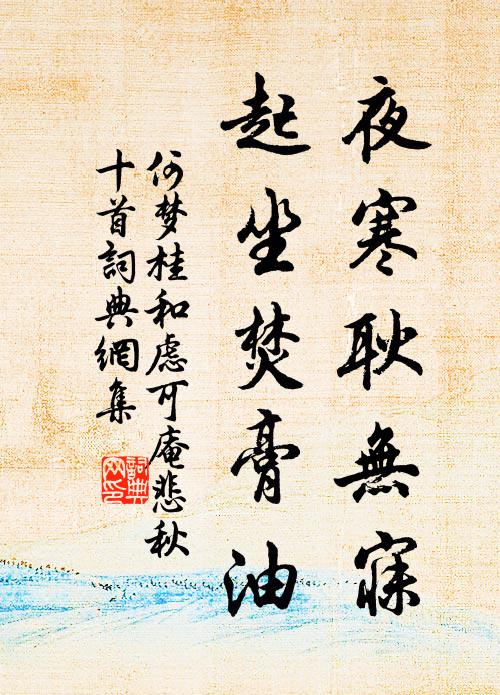 夜寒耿無寐
起坐焚膏油
何梦桂和慮可庵悲秋
十首詞典網集
詞典
网印